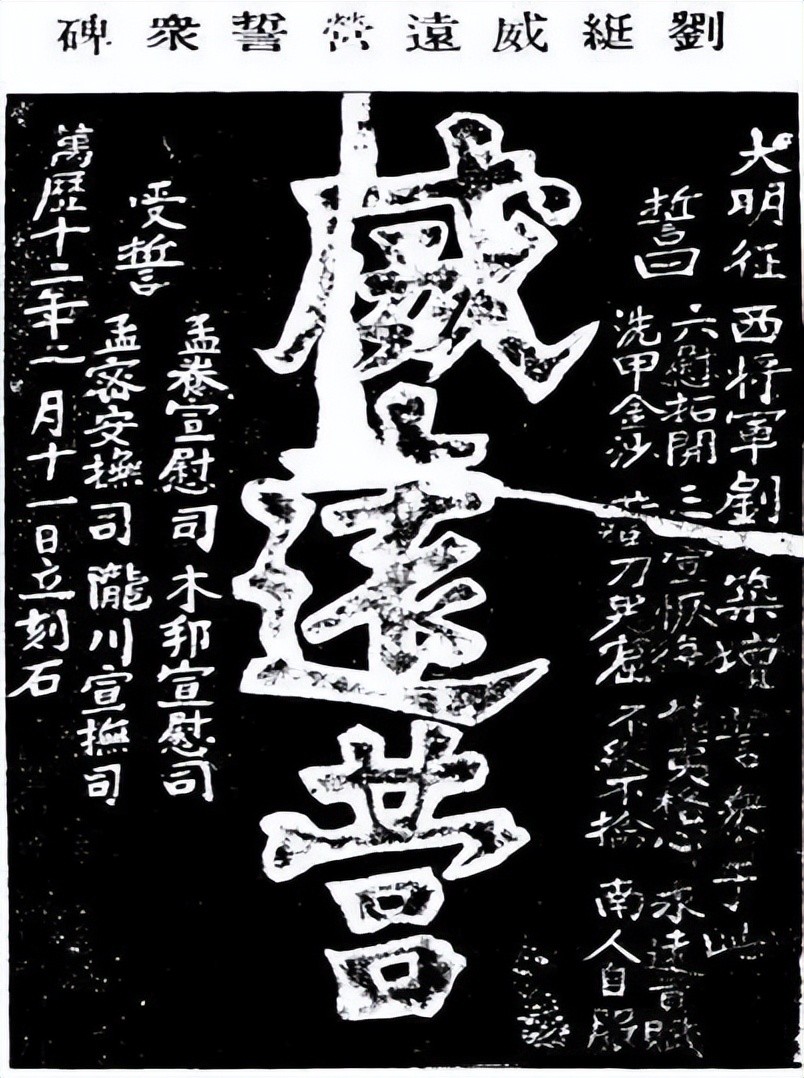 劉綎威遠營誓衆碑
大明征西將軍劉 築壇誓衆于此
誓曰
六慰拓開 三宣恢復 夷格心 永遠貢賦
洗甲金沙 刀鬼窟 不縱不擒 南人自服
威遠營
受誓
孟養宣慰司 木邦宣慰司
孟密安撫司 隴川宣撫司
萬歷十二年二月十一日立刻石